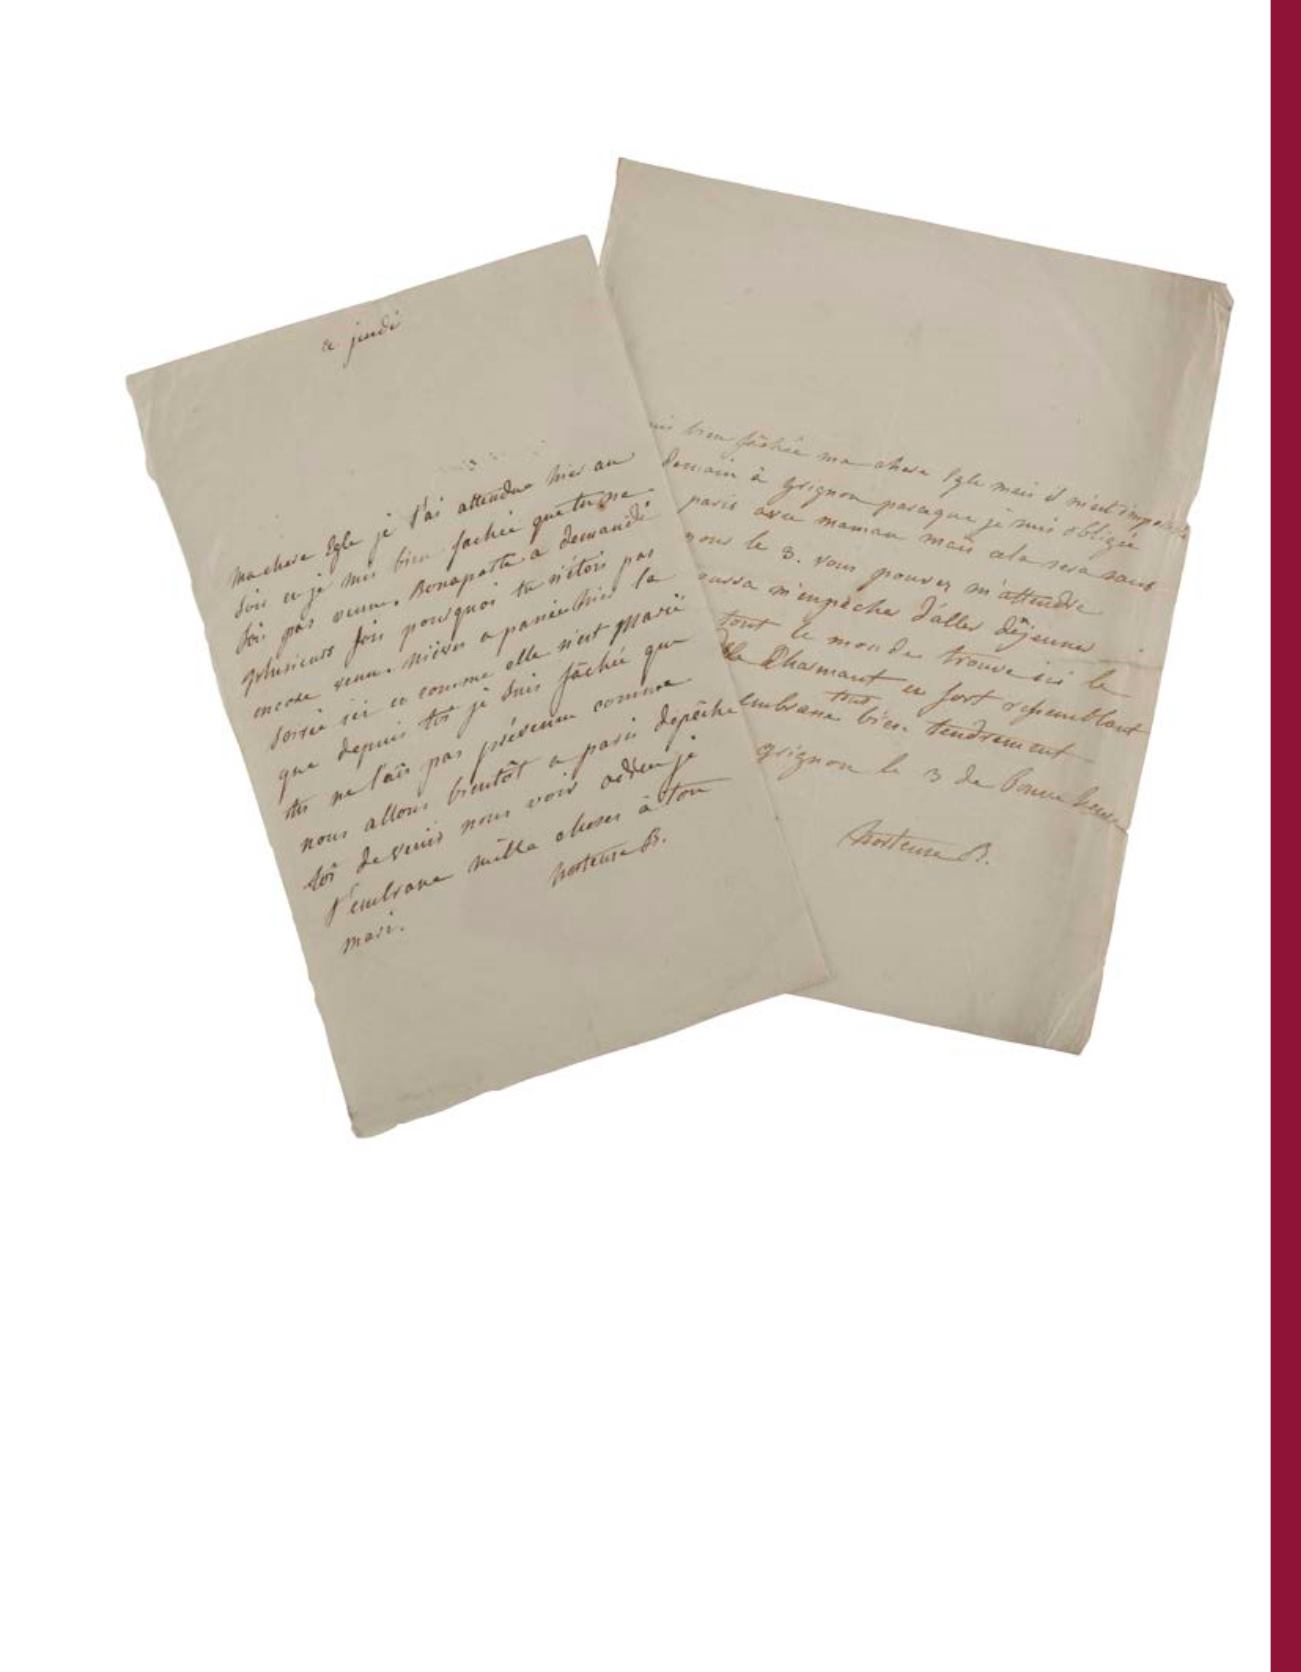 ce jeudi
ma chere Egle je t'ai attendue hier au
soir et je suis bien fachée que tu ne
sois pas venue. Bonaparte a demandé
plusieurs fois pourquoi tu n'étois pas
encore venu. a passée hier la
soirée ici et comme elle n'est marié
que depuis toi je suis fâchée que
tu ne l'ais pas prévenue comme
nous allons bientôt a paris depêche
toi de venir nous voir adieu je
t'embrasse mille choses à ton
mari.
hortense B.
bien fâchée ma chere Egle mais il m'est impossible
demain à grignon parceque je suis obligée
paris avec maman mais cela sera sans
pour le 3. vous pouvez m'attendre
pourra m'enpêcher d'aller déjeuner
tout le monde trouve ici le
Charmant et fort ressemblant
embrasse bien tendrement
tout
grignon le 3 de bonne heure
hortense B.